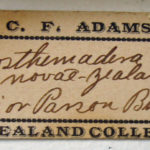 C. F. ADAMS
osthemadera
novae-Zeala
or Parson B
EALAND COLLE